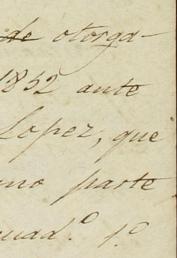 de otorga-
1852 ante
Lopez, que
mo parte
uad.º 1.º